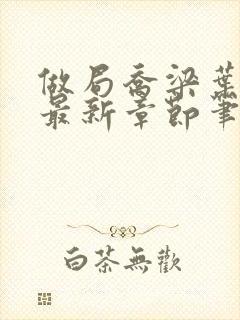 做局乔梁葉
最新章節筆
白茶無歡